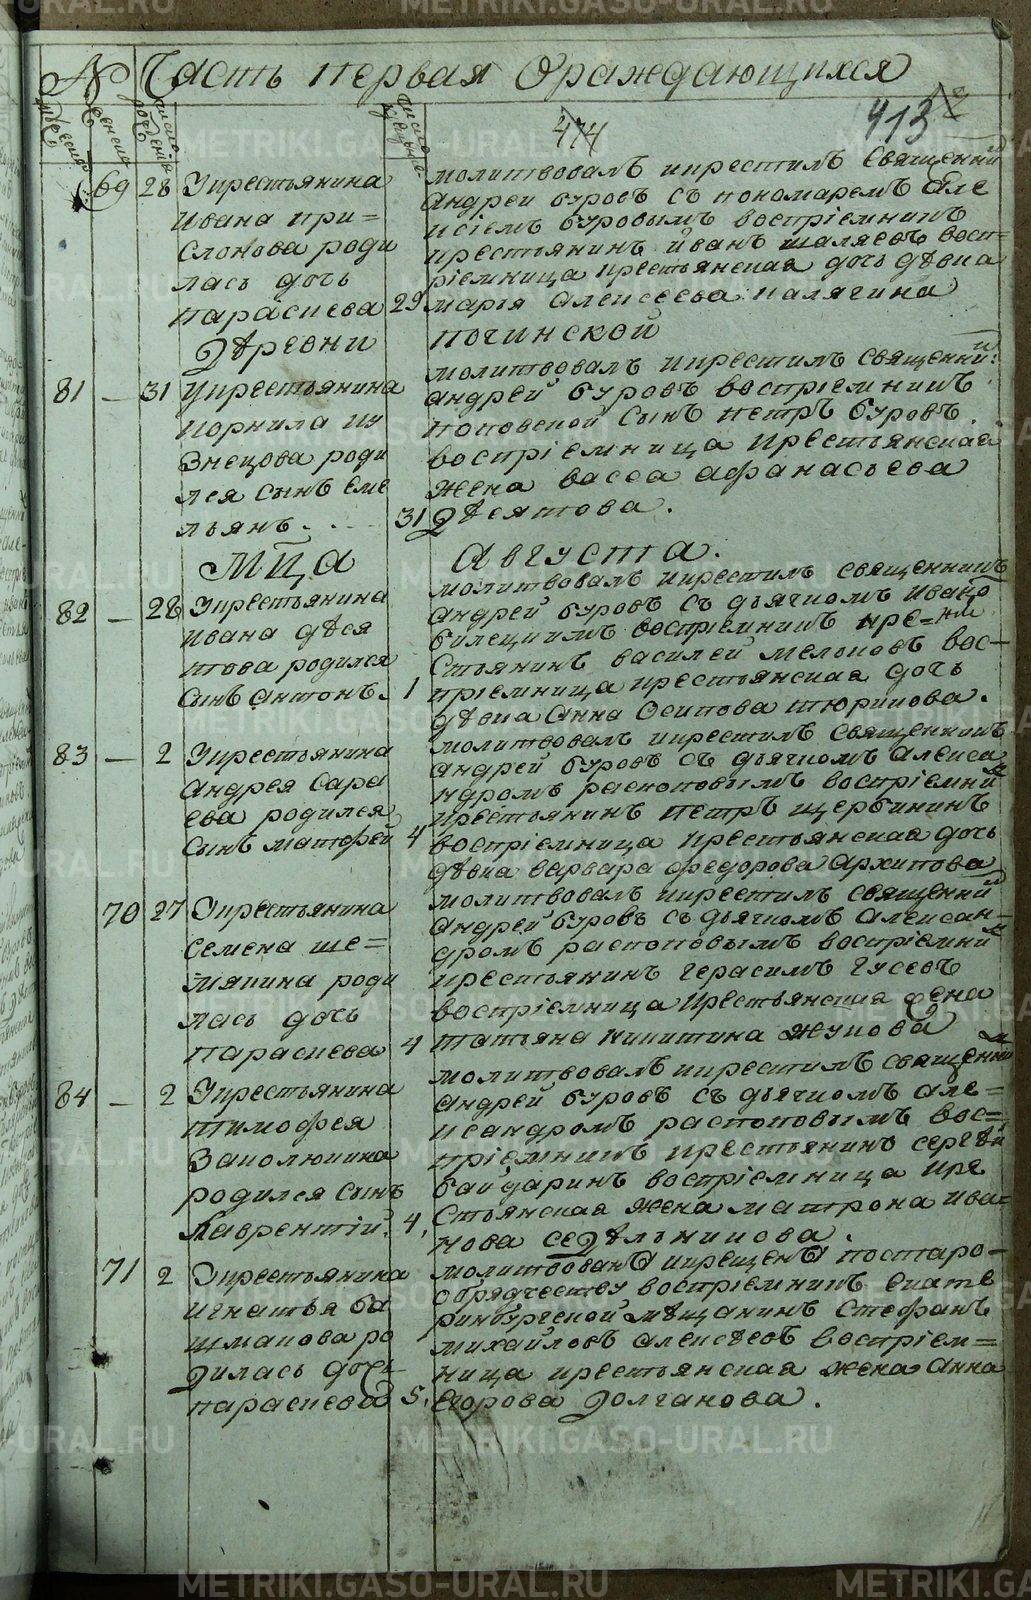 METRIKI.GASO-URAL.RU
№ Часть первая Ораждающихся
мужеска
женска
число рождения
число крещения
474
413
69 28 Укрестьянина
Ивана При=
слонова роди
лась дочь
параскева 29
молитвовалъ икрестилъ Священни
Андрей Буровъ съ пономаремъ Але
ксіемъ Буровымъ воспріемникъ
крестьянинъ Иванъ Шаляевъ Восп=
ріемница крестьянская дочь дѣвка
марія Алексеева Калягина
Дѣревни починской
81 — 31 Укрестьянина
Корнила Ку
знецова роди
лся сынъ Еме
льянъ. 31
молитвовалъ икрестилъ священни
андрей Буровъ воспріемникъ
поповской сынъ петръ Буровъ
воспріемница крестьянская
жена васса афанасьева
Дѣсятова.
Мца Августа.
82 — 28 Укрестьянина
ивана дѣся
това родился
сынъ антонъ. 1
молитвовалъ икрестилъ священникъ
Андрей Буровъ съ дьячкомъ Ивано
билецкимъ воспріемникъ кре=
стьянинъ василей мелоховъ вос-
пріемница крестьянская дочь
дѣвка Анна Осипова тюрикова.
83 — 2 Укрестьянина
Андрея Сара
ева родился
сынъ матфей 4
молитвовалъ икрестилъ священникъ
Андрей Буровъ съ дьячкомъ алекса
ндромъ распоповымъ воспріемни
крестьянинъ петръ щербининъ
воспріемница крестьянская дочь
дѣвка варвара федорова Архипова
70 27 Укрестьянина
Семена ше=
мякина роди
лась дочь
параскева 4
молитвовалъ икрестилъ священни
Андрей Буровъ съ дьячкомъ алексан-
дромъ распоповымъ воспріемни
крестьянинъ герасимъ гусевъ
воспріемница Крестьянская жена
татьяна никитина жукова
84 — 2 Укрестьянина
тимофея
Заколюкина
родился сынъ
Лаврентій. 4,
молитвовалъ икрестилъ священни
андрей Буровъ съ дьячкомъ але=
ксандромъ распоповымъ вос=
пріемникъ крестьянинъ сергѣй
байдаринъ воспріемница кре
стьянская жена матрона ива=
нова седѣльникова.
71 2 Укрестьянина
игнатья Ба
шмакова ро
дилась дочь
параскева 5.
молитвованъ икрещенъ постаро-
обрядчеству воспріемникъ Екате
ринбургской мѣщанинъ Стефанъ
михайловъ алексѣевъ воспріем=
ница крестьянская жена Анна
Егорова Долганова.